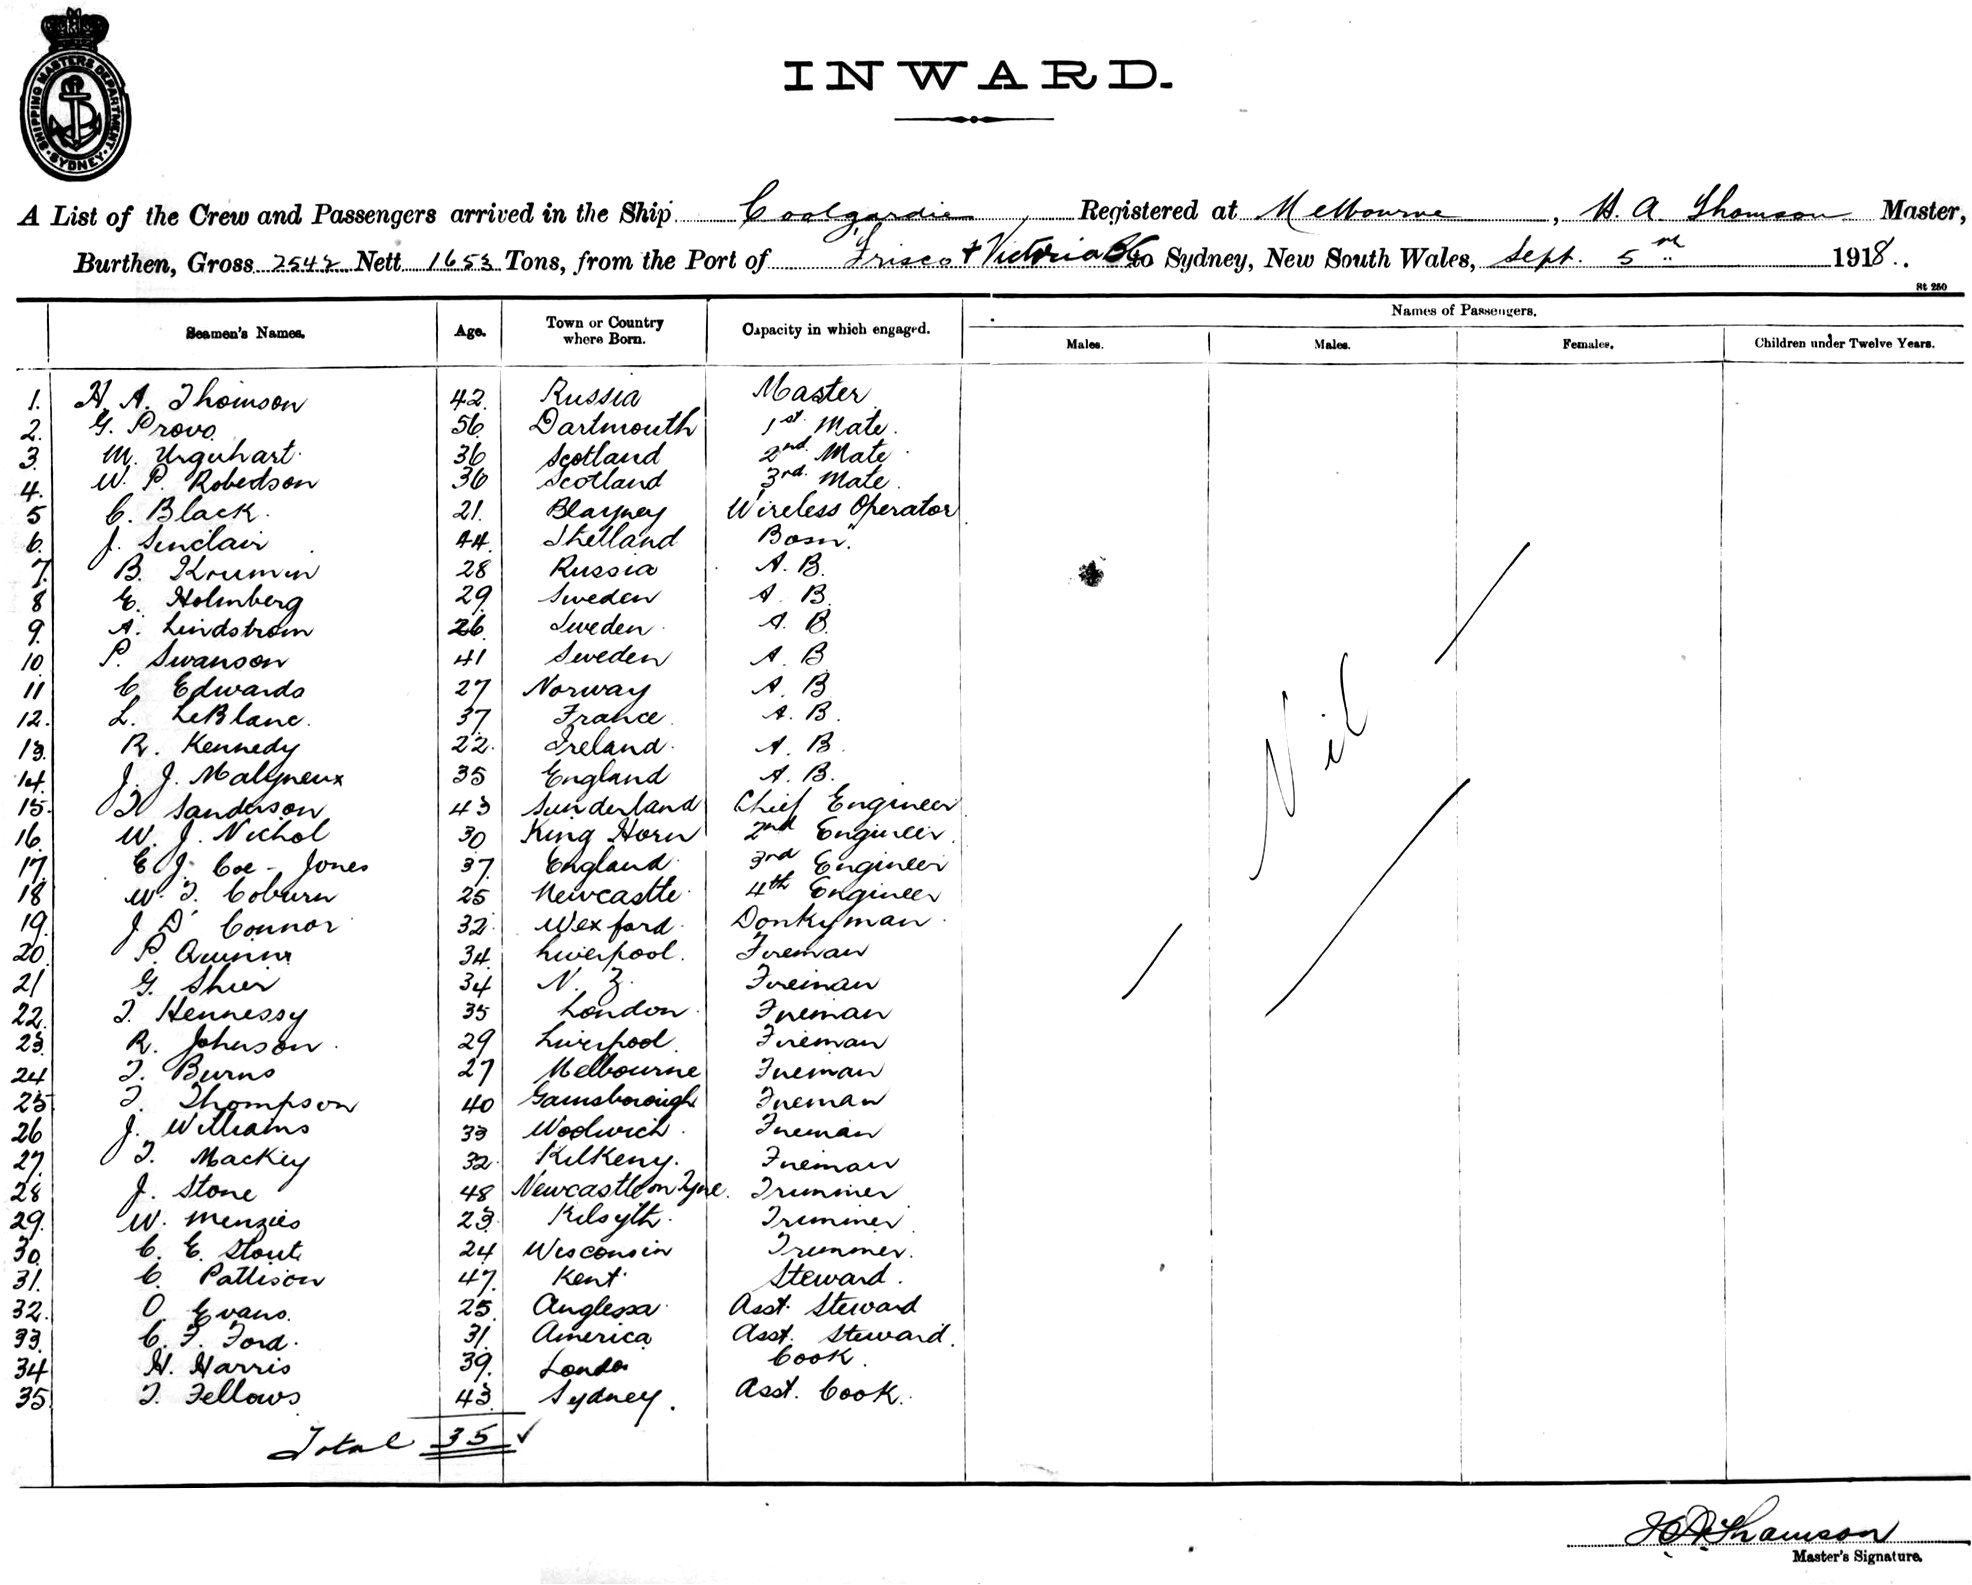 SHIPPING MASTERS DEPARTMENT. SYDNEY
INWARD.
A List of the Crew and Passengers arrived in the Ship Coolgardie, Registered at Melbourne, H. A. Thomson Master,
Burthen, Gross 2542 Nett 1653 Tons, from the Port of Frisco + Victoria BC to Sydney, New South Wales, Sept. 5 1918.
St 250
Seamen's Names. Age. Town or Country where Born. Capacity in which engaged. Names of Passengers.
Males. Males. Females. Children under Twelve Years.
1. H. A. Thomson 42. Russia Master
2. G. Provo. 56 Dartmouth 1st Mate.
3. M. Urquhart. 36 Scotland 2nd Mate
4. W. P. Robertson 36 Scotland 3rd Mate.
5 C. Black. 21. Blayney Wireless Operator
6. J. Sinclair 44. Shetland Bosn.
7. B. Krumin 28 Russia A. B.
8 E. Holmberg 29. Sweden A. B.
9. A. Lindstrom 26. Sweden A. B.
10 P. Swanson 41 Sweden A. B
11 C. Edwards 27 Norway A. B
12. L. LeBlanc. 37. France. A. B.
13. R. Kennedy 22. Ireland. A. B.
14. J. J. Malyneux 35 England A. B.
15. T Sanderson 43 Sunderland Chief Engineer
16. W. J. Nichol 30 King Horn 2nd Engineer.
17. E J. Coe - Jones 37. England. 3rd Engineer
18 W. T. Coburn 25 Newcastle. 4th Engineer
19. J O' Connor 32. Wexford. Donkyman.
20. P. Quinn 34. Liverpool. Fireman
21 G. Shier 34 N. Z. Fireman
22. T. Hennessy 35 London. Fireman
23. R. Johnson. 29 Liverpool. Fireman
24 T. Burns 27 Melbourne Fireman
25 T. Thompson 40 Gainsborough Fireman
26 J. Williams 33 Woolwich. Fireman
27. T. Mackey 32. Kilkeny. Fireman
28 J. Stone 48 Newcastle on Tyne. Trimmer
29. W. Menzies 23. Kilsyth. Trimmer
30. C. E. Stout 24 Wisconsin Trimmer.
31. C. Pattison 47. Kent. Steward.
32. O Evans. 25. Anglessa. Asst. Steward
33. C. F. Ford. 31. America Asst. Steward.
34 H. Harris 39. London Cook.
35 T. Fellows 43. Sydney. Asst. Cook.
Nil
Total 35 ✓
H A Thomson
Master's Signature.